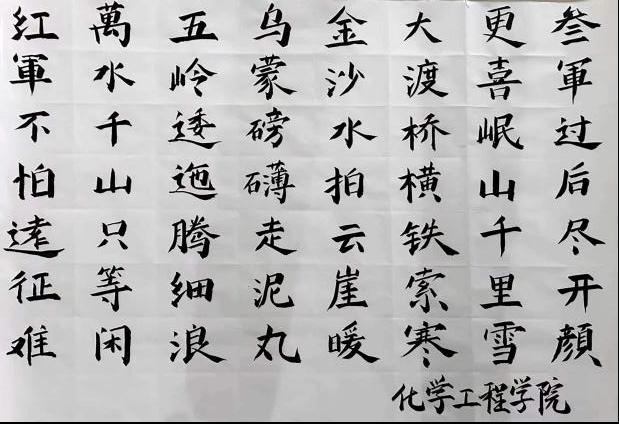 红軍不怕遠征难
萬水千山只等闲
五岭逶迤腾细浪
乌蒙磅礴走泥丸
金沙水拍云崖暖
大渡桥横铁索寒
更喜岷山千里雪
叁軍过后尽开顔
化学工程学院